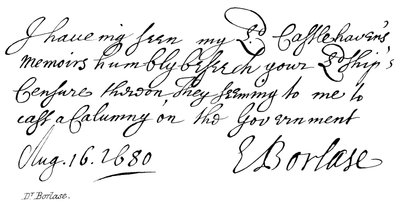 I haveing seen my Ld Castlehaven's
memoirs humbly beseech your Ldship's
Censure thereon, They seeming to me to
cast a Calumny on the Government
Aug. 16. 1680 EBorlase
Dr. Borlase.